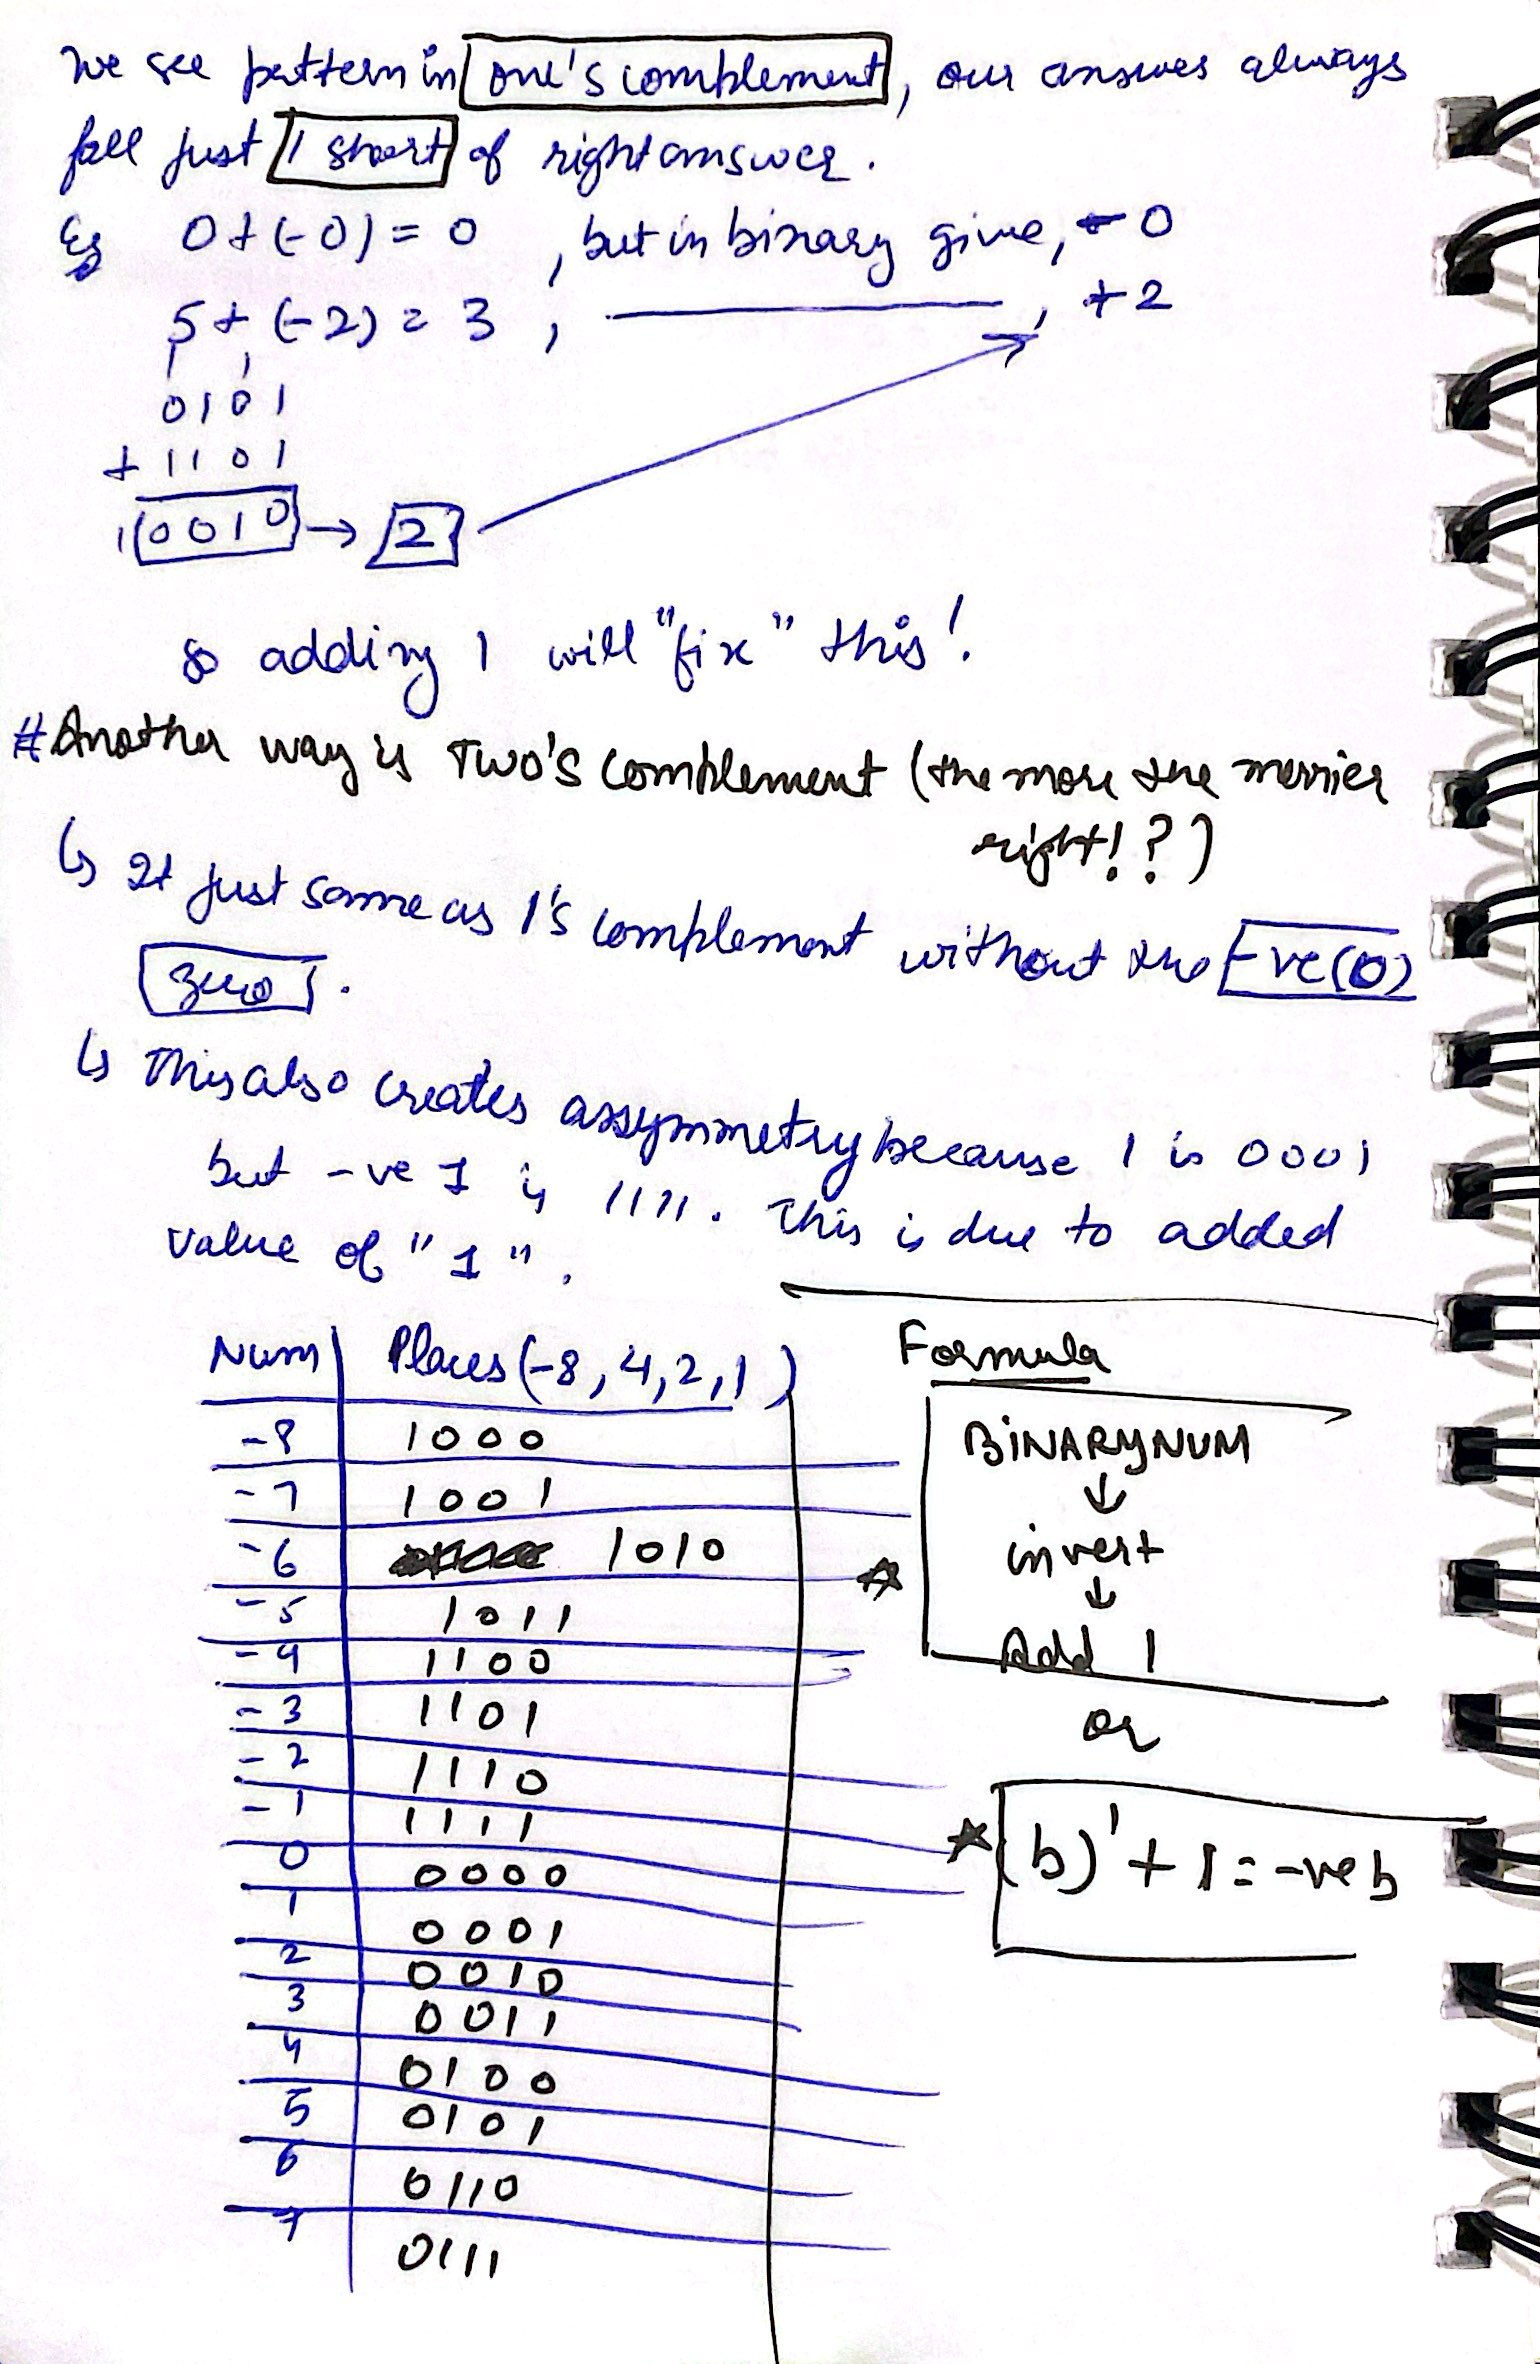 We see pattern in one's complement, our answes always
fall just 1 short of right answer.
Eg 0 + (-0) = 0 , but in binary give, -0
5 + (-2) = 3 , ———— , +2
0101
+ 1101
1 0010 → 2
so adding 1 will "fix" this!
# Another way is Two's complement (the more the merrier
right!?)
↳ It just same as 1's complement without the -ve(0)
zero.
↳ This also creates assymmetry because 1 is 0001
but -ve 1 is 1111. This is due to added
value of "1".
Num Places (-8, 4, 2, 1)
-8 1000
-7 1001
-6 1010
-5 1011
-4 1100
-3 1101
-2 1110
-1 1111
0 0000
1 0001
2 0010
3 0011
4 0100
5 0101
6 0110
7 0111
Formula
BINARY NUM
↓
invert
↓
Add 1
or
(b)' + 1 = -ve b